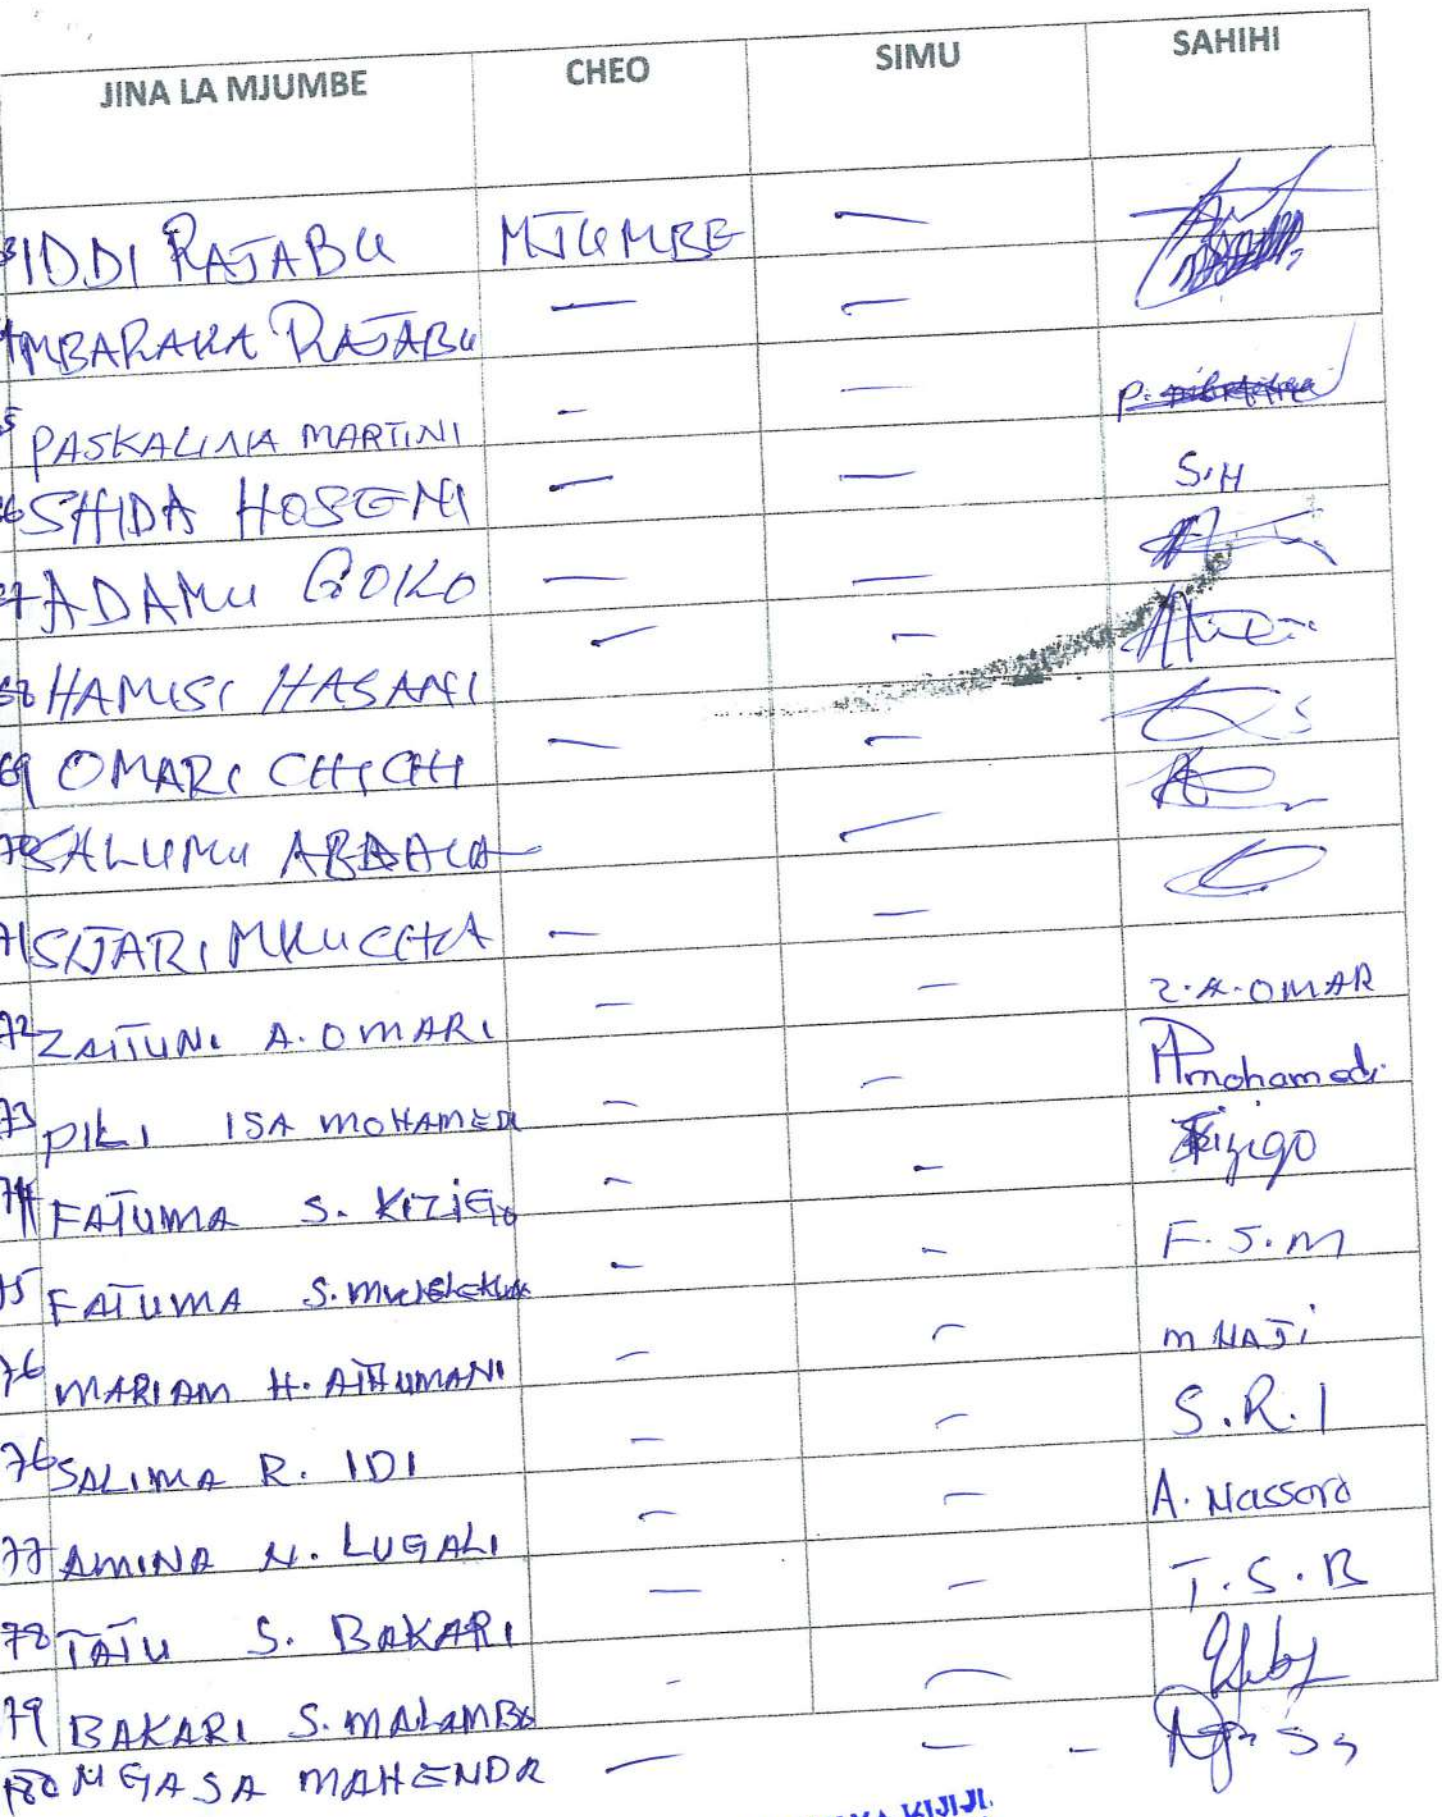 JINA LA MJUMBE CHEO SIMU SAHIHI
IDDI RAJABU MJUMBE —
MBARAKA RAJABU — —
PASKALINA MARTINI - — P.
SHIDA HOSENI — — S.H
ADAMU GOKO — —
68 HAMISI HASANI — —
69 OMARI CHICHI — —
70 SALUMU ABDALA — —
71 SIJARI MKUCCHA — —
72 ZAITUNI A. OMARI — — Z.A.OMAR
73 PILI ISA MOHAMEDI — — mohamedi
74 FATUMA S. KIZIGO — - Kizigo
75 FATUMA S. - - F.S.M
76 MARIAM H. ATHUMANI — — M HAJI
76 SALIMA R. IDI — — S.R.I
77 AMINA N. LUGALI — — A. Nassoro
78 TATU S. BAKARI — — T.S.B
79 BAKARI S. MALAMBO - —
80 NGASA MAHENDA — — -
KIJIJI